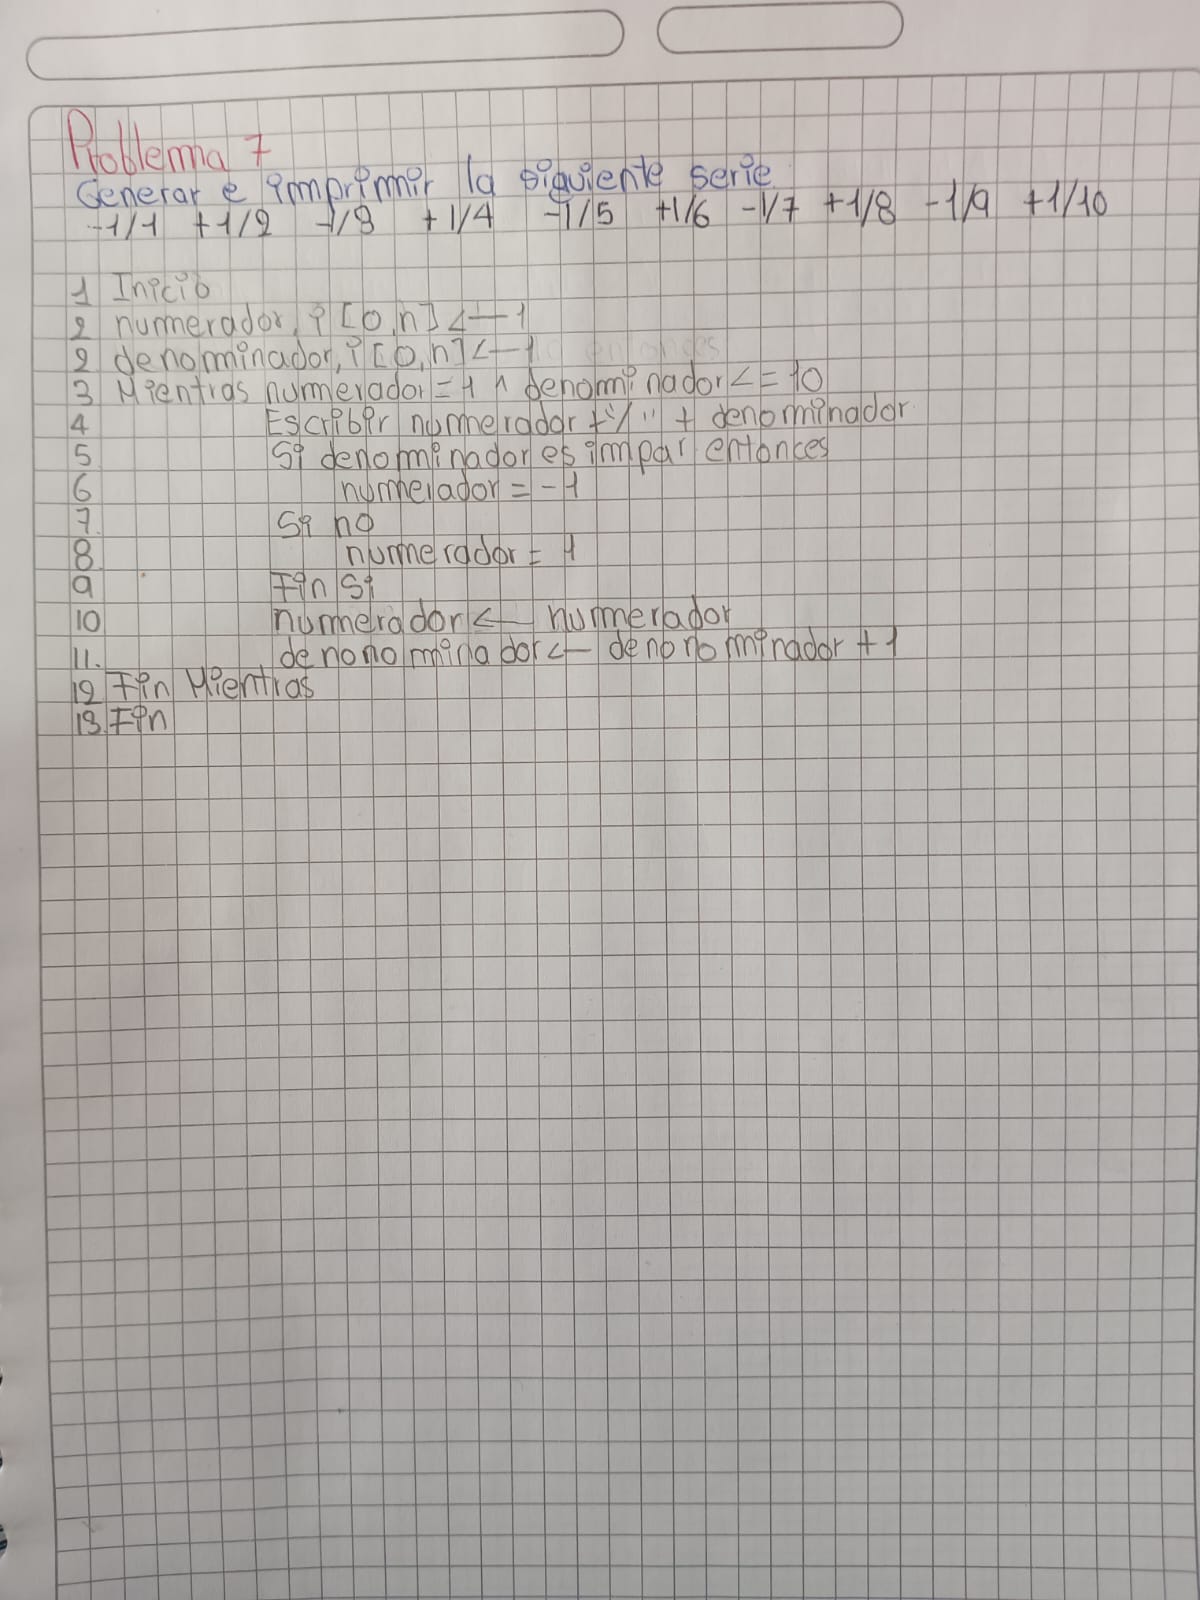 Problema 7
Generar e imprimir la siguiente serie
-1/1 +1/2 -1/3 +1/4 -1/5 +1/6 -1/7 +1/8 -1/9 +1/10
1 Inicio
2 numerador, i [0,n] <— 1
2 denominador, i [0,n] <— 1 entonces
3 Mientras numerador = 1 ^ denominador <= 10
4 Escribir numerador + "/" + denominador
5 Si denominador es impar entonces
6 numerador = -1
7. Si no
8. numerador = 1
9 Fin Si
10 numerador <— numerador
11. denonominador <— denonominador + 1
12 Fin Mientras
13. Fin